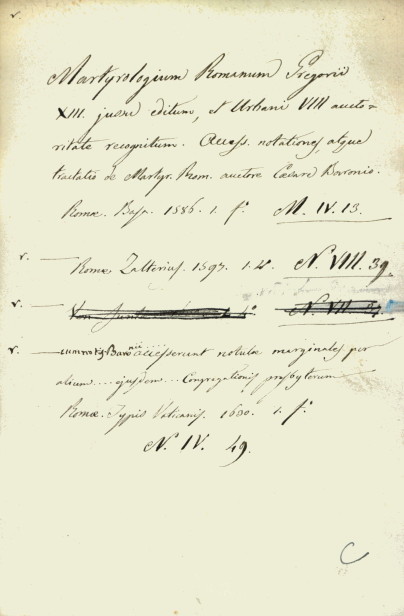 v.
Martyrologium Romanum Gregorii
XIII. jussu editum, et Urbani VIII aucto-
ritate recognitum. Access. notationes, atque
tractatio de Martyr. Rom. auctore Cæsare Baronio.
Romæ. Basa. 1586. 1. f.° M. IV. 13.
v. — Romæ Zalterius. 1597. 1. 4.° N. VIII. 39.
v. — N. VII.
v. — cum not. Baronii accesserunt notulæ marginales per
alium ... ejusdem ... Congregationis presbyterum
Romæ. Typis Vaticanis. 1630. 1. f.°
N. IV. 49.
C